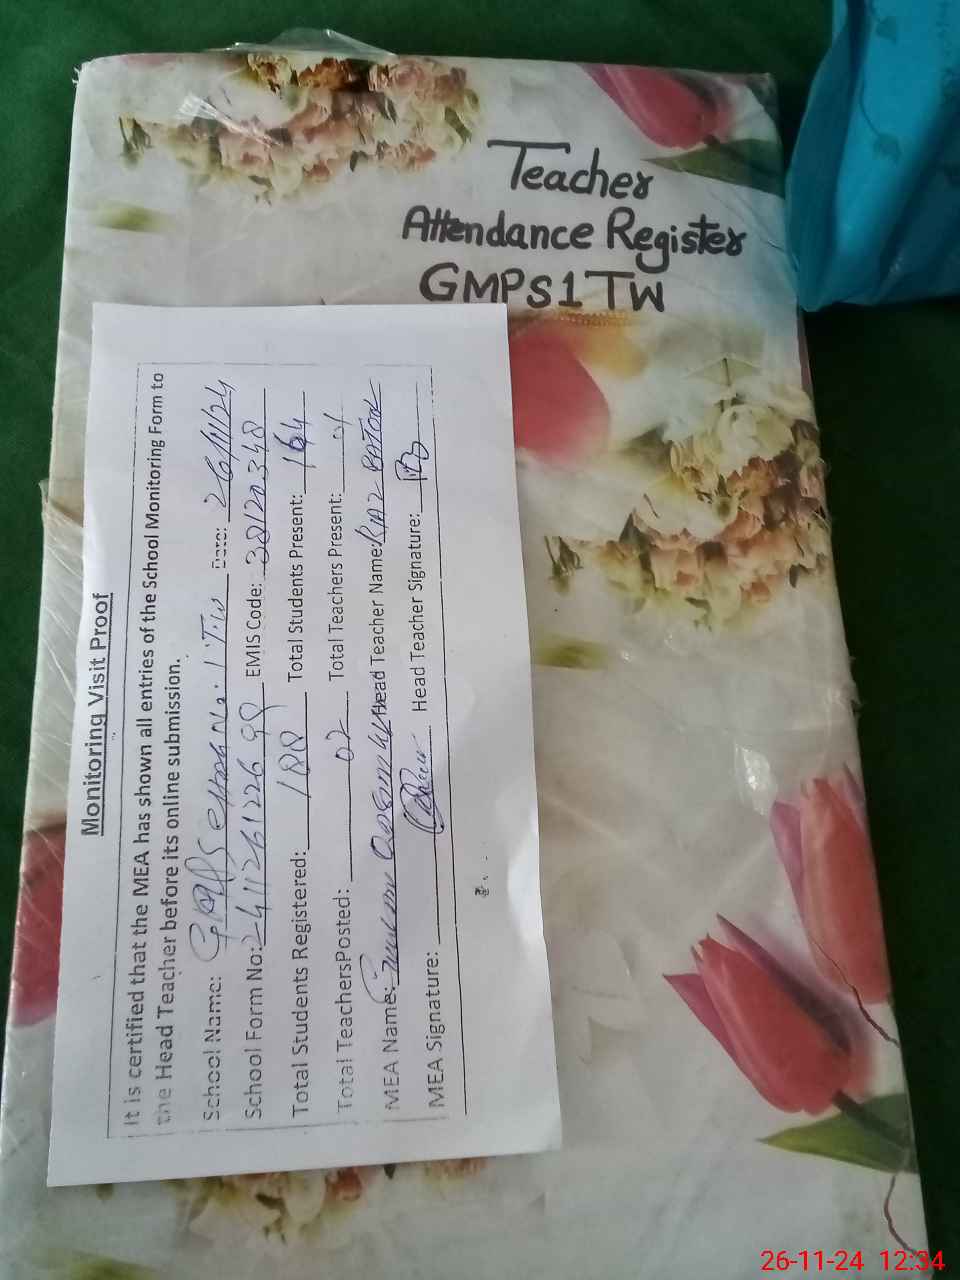 Teacher
Attendance Register
GMPS1TW
Monitoring Visit Proof
It is certified that the MEA has shown all entries of the School Monitoring Form to
the Head Teacher before its online submission.
School Name: No. 1 T.W Date: 26/11/24
School Form No: 2411261226 EMIS Code: 38120348
Total Students Registered: 188 Total Students Present: 164
Total TeachersPosted: 02 Total Teachers Present:
MEA Name: Head Teacher Name:
MEA Signature: Head Teacher Signature:
26-11-24 12:34